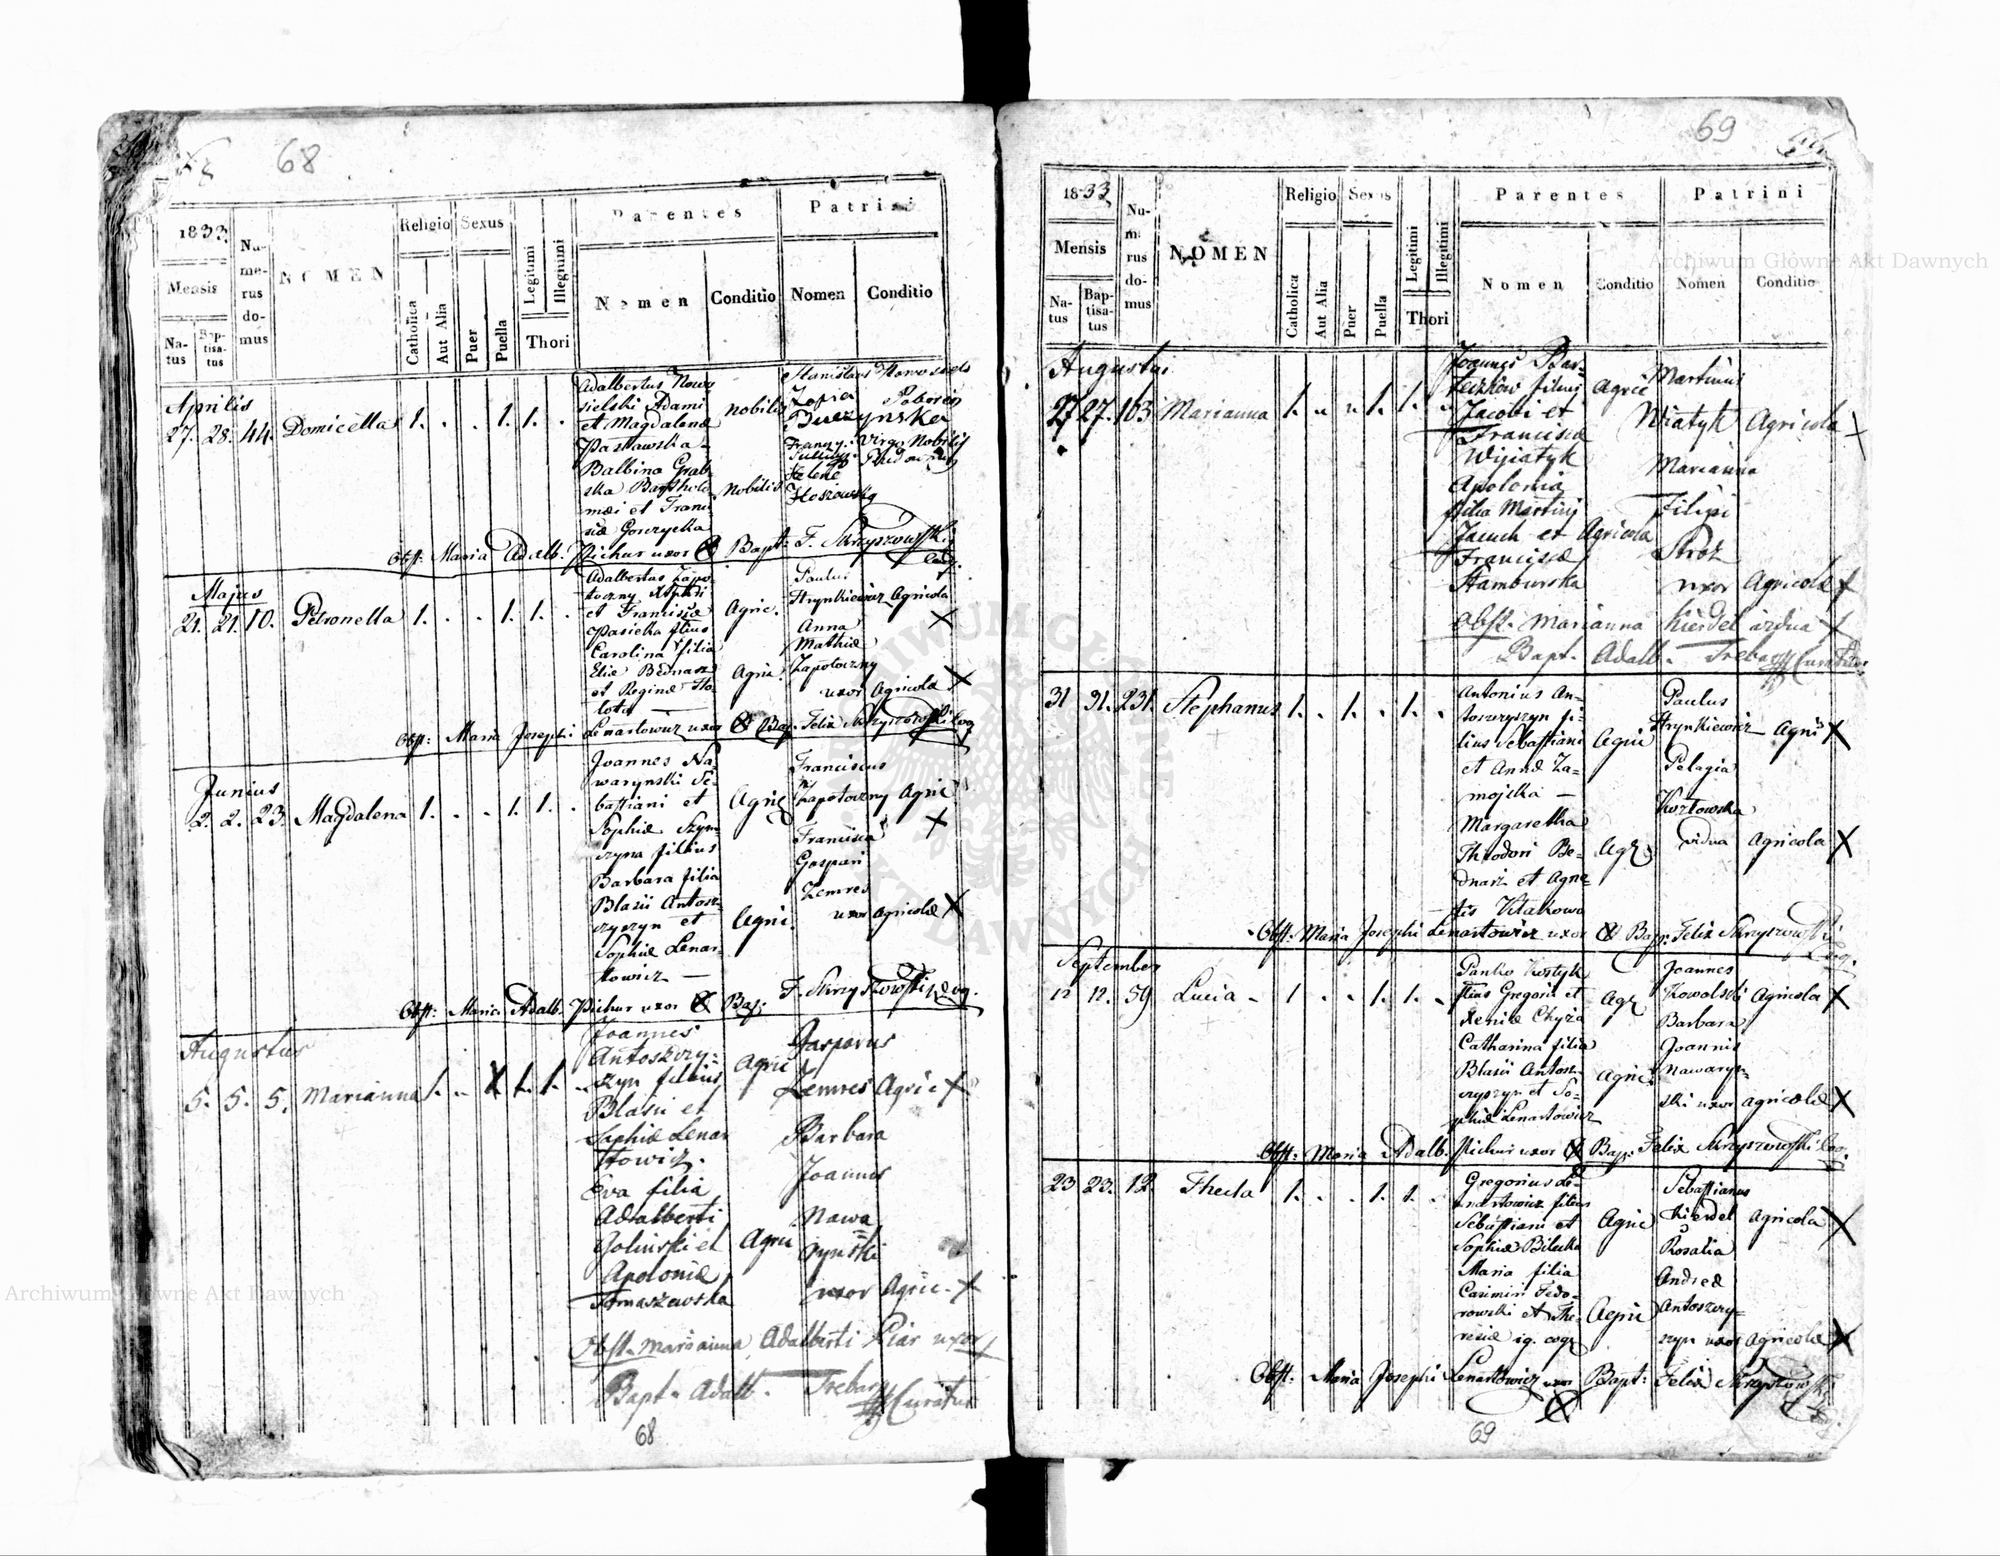 68
68
1833.
Mensis
Natus
Baptisatus
Numerus domus
NOMEN
Religio
Catholica
Aut Alia
Sexus
Puer
Puella
Legitimi
Illegitimi
Thori
Parentes
Nomen
Conditio
Patrini
Nomen
Conditio
Aprilis
27. 28. 44. Domicella 1. . . 1. 1. .
Adalbertus Nowo
sielski Adami
et Magdalenæ
Pasławska
Balbina Grab
ska Bartholo
mæi et Franci
siæ Gorczycka
nobilis
nobilis
Stanislaus Nowosiels
Zofia
Buczynska
Virgo Nobilis
Helene
Hoszowska
Obst: Maria Adalb. Pichur uxor Bapt: F. Skrzyszowski
Majus
21. 21. 10. Petronella 1. . . 1. 1. .
Adalbertus Zapo
toczny
et Franciscæ
Pasieka filius
Carolina filia
Eliæ Bednarz
et Reginæ Ho
lota
Agric.
Agric.
Paulus
Hrynkiewicz Agricola X
Anna
Mathiæ
Zapotoczny
uxor Agricolæ X
Obst: Maria Josephi Lenartowicz uxor Bap. Felix Skrzyszowski Coo.
Junius
2. 2. 23. Magdalena 1. . . 1. 1. .
Joannes Na-
warynski Se-
bastiani et
Sophiæ Szym
czyna filius
Barbara filia
Blasii Antosz-
czyszyn et
Sophiæ Lenar-
towicz —
Agric
Agric.
Franciscus
Zapotoczny Agric X
Francisca
Gaspari
Zemres
uxor Agricolæ X
Obst: Maria Adalb. Pichur uxor Bap: F. Skrzyszowski Coo.
Augustus
5. 5. 5. Marianna 1. . X 1. 1. .
Joannes
Antoszczy-
szyn filius
Blasii et
Sophiæ Lenar
towicz.
Eva filia
Adalberti
Golinski et
Apoloniæ
Tomaszewska
Agric
Agric
Gasparus
Zemres Agric X
Barbara
Joannis
Nawa
rynski
uxor Agric. X
Obst. Marianna Adalberti Piar uxor
Bapt. Adalb. Trebacz Curatus
68
69
1833
Mensis
Natus
Baptisatus
Numerus domus
NOMEN
Religio
Catholica
Aut Alia
Sexus
Puer
Puella
Legitimi
Illegitimi
Thori
Parentes
Nomen
Conditio
Patrini
Nomen
Conditio
Augustus
27 27. 163 Marianna 1. . . 1. 1. .
Joannes Bar-
teczkow filius
Jacobi et
Franciscæ
Wijiatyk
Apolonia
filia Martini
Jacuch et
Franciscæ
Hamburska
Agric
Agricola
Martinus
Wiatyk Agricola X
Marianna
Filipi
Stroz
uxor Agricolæ X
Obst. Marianna Kierdel vidua X
Bapt. Adalb. Trebacz Curatus
31 31. 231. Stephanus 1. . 1. . 1. .
Antonius An-
toszczyszyn fi-
lius Sebastiani
et Annæ Za-
mojska —
Margaretha
Theodori Be-
dnarz et Agne-
tis Witakowa
Agric
Agr
Paulus
Hrynkiewicz Agric X
Pelagia
Kozłowska
vidua Agricola X
Obst. Maria Josephi Lenartowicz uxor Bap: Felix Skrzyszowski
Coo.
September
12 12. 59 Lucia 1 . . 1. 1. .
Panko Kostyk
filius Gregorii et
Xeniæ Chyza
Catharina filia
Blasii Antosz-
czyszyn et So-
phiæ Lenartowicz
Agr
Agric
Joannes
Kowalski Agricola X
Barbara
Joannis
Nawaryn-
ski uxor agricolæ X
Obst: Maria Adalb. Pichur uxor Bap: Felix Skrzyszowski Coo.
23 23. 12. Thecla 1. . . 1. 1. .
Gregorius Le-
nartowicz filius
Sebastiani et
Sophiæ Bilecka
Maria filia
Casimiri Fedo-
rowski et The-
resiæ ig. cog
Agric
Agric
Sebastianus
Kierdel agricola X
Rosalia
Andreæ
Antoszczy-
szyn uxor Agricolæ X
Obst: Maria Josephi Lenartowicz uxor Bapt: Felix Skrzyszowski
69
Archiwum Główne Akt Dawnych
Archiwum Główne Akt Dawnych
ARCHIWUM GŁÓWNE
AKT DAWNYCH